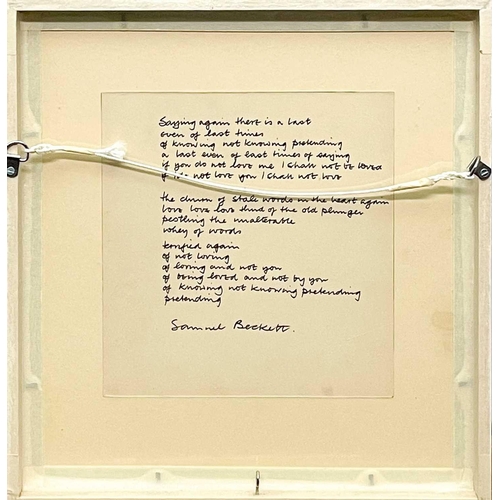 Saying again there is a last
even of last times
of knowing not knowing pretending
a last even of last times of saying
if you do not love me I shall not be loved
if I do not love you I shall not love
the churn of stale words in the heart again
love love love thud of the old plunger
pestling the unalterable
whey of words
terrified again
of not loving
of loving and not you
of being loved and not by you
of knowing not knowing pretending
pretending
Samuel Beckett.